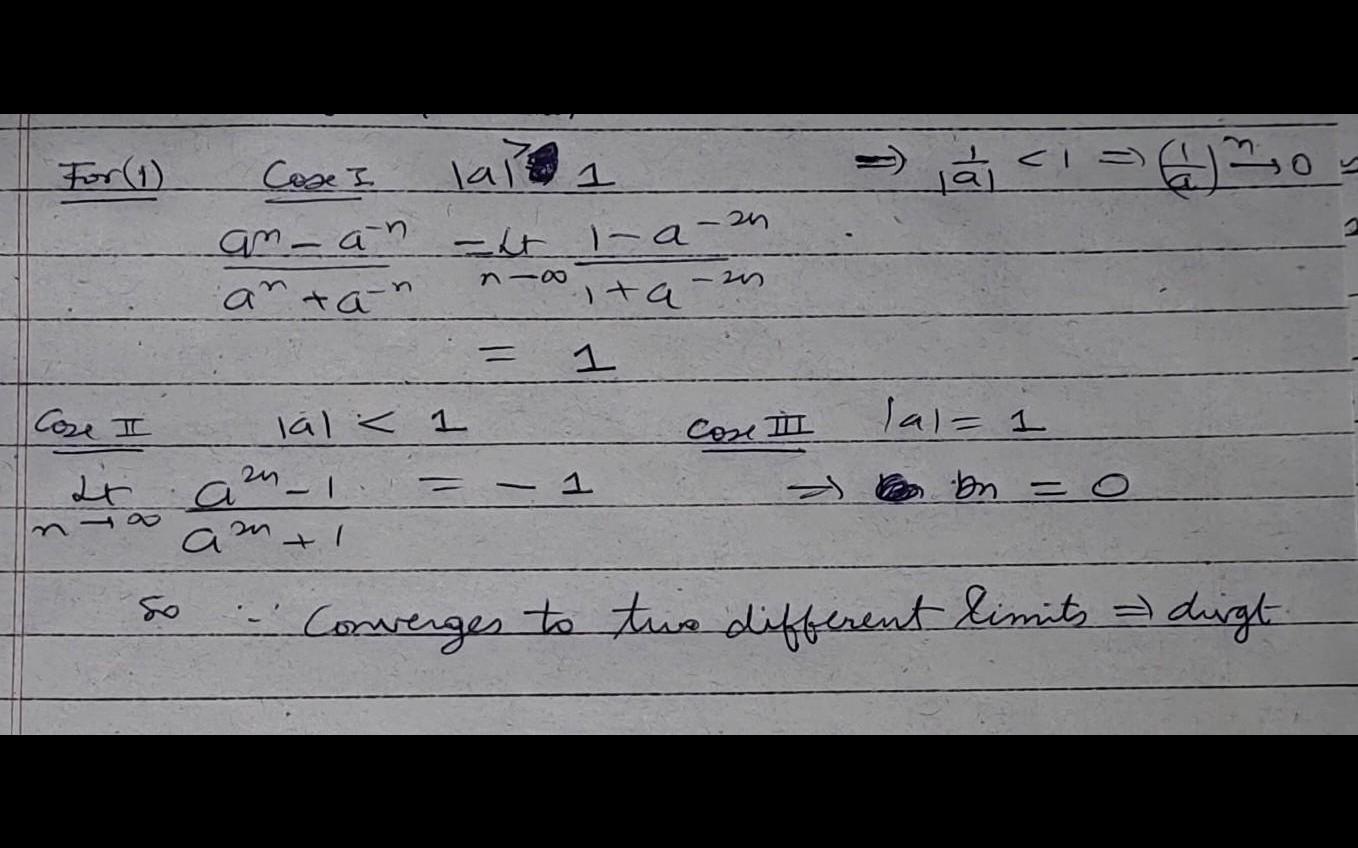 For (1) Case I |a| > 1 ⇒ 1/|a| < 1 ⇒ (1/a)^n → 0
(a^n - a^-n)/(a^n + a^-n) = Lt n→∞ (1 - a^-2n)/(1 + a^-2n)
= 1
Case II |a| < 1 Case III |a| = 1
Lt n→∞ (a^2n - 1)/(a^2n + 1) = - 1 ⇒ bn = 0
So ∵ Converges to two different limits ⇒ divgt